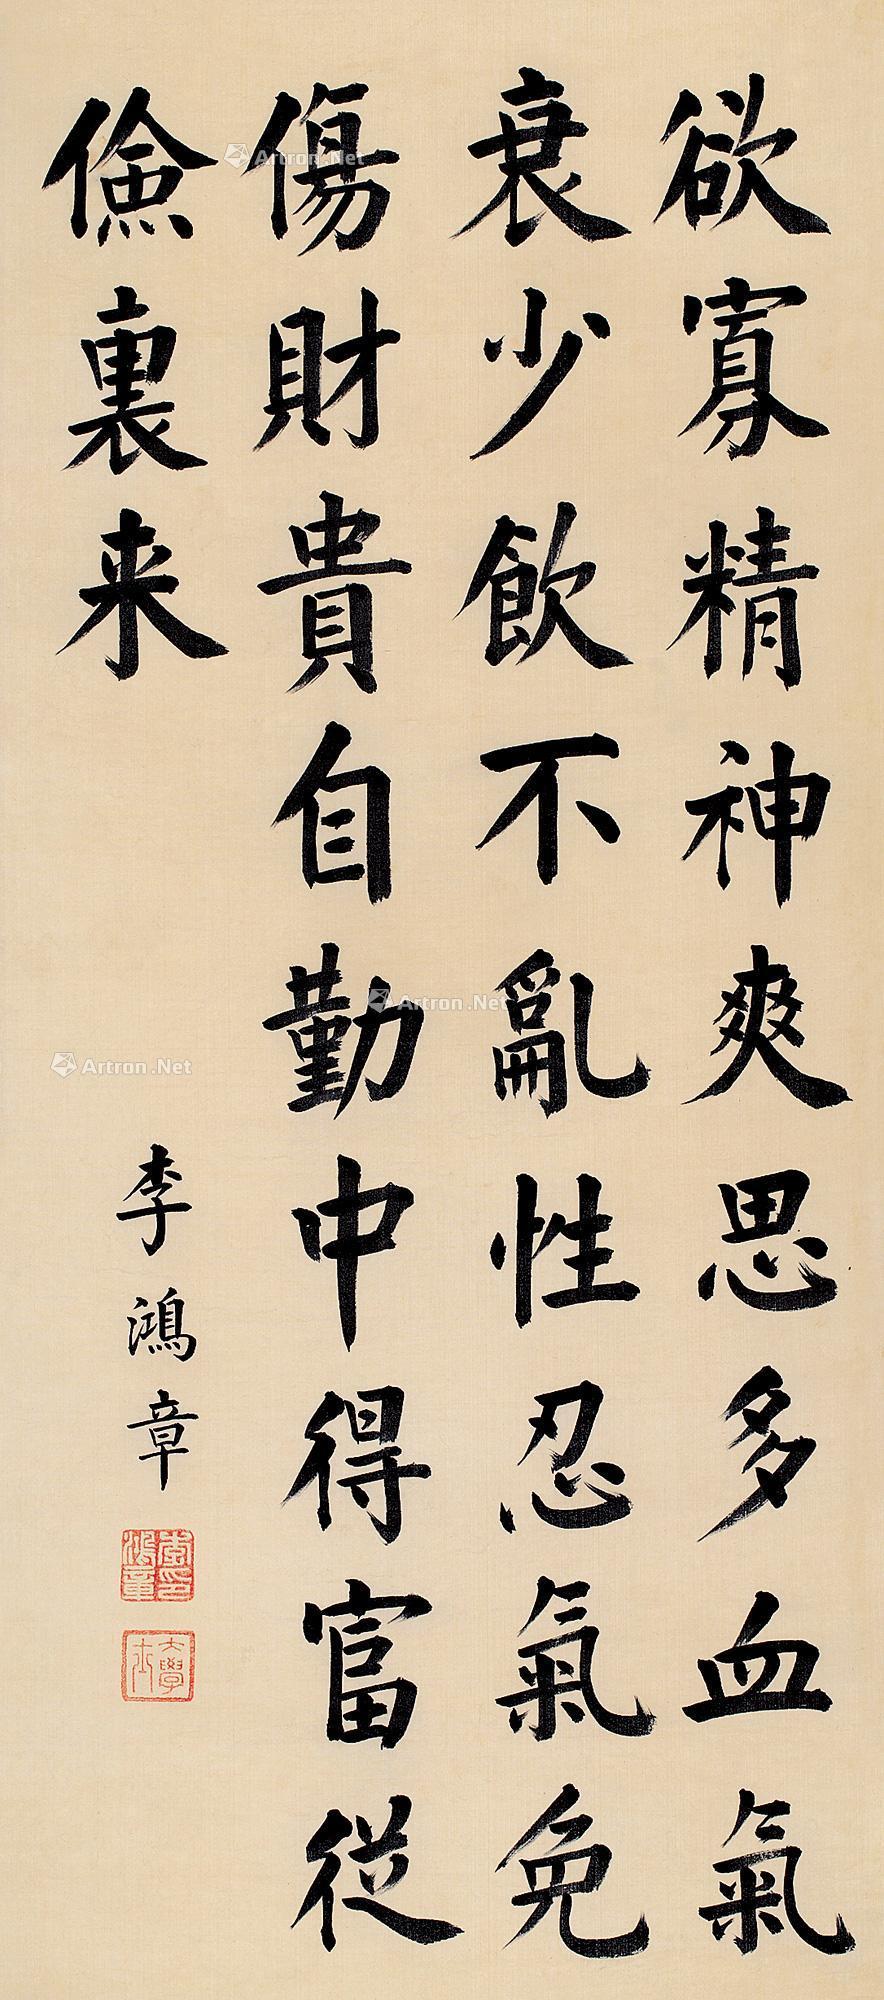 欲寡精神爽思多血氣
衰少飲不亂性忍氣免
傷財貴自勤中得富從
儉裏来
李鴻章
李鴻章印
大學士
Artron.Net
Artron.Net
Artron.Net